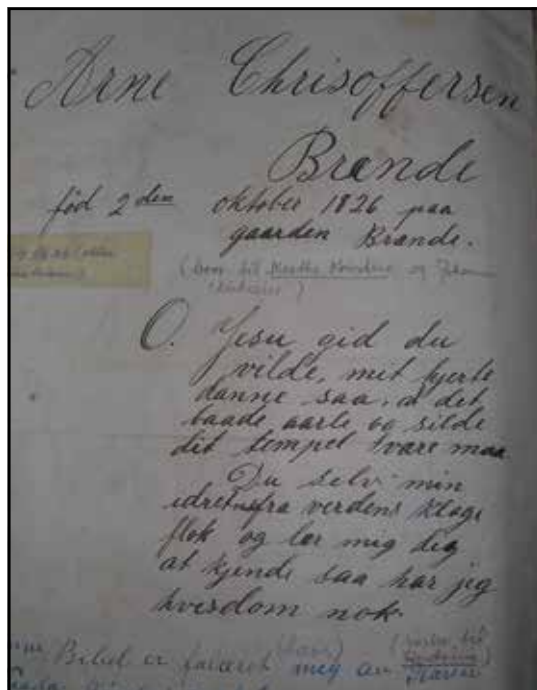 Arne Chrisoffersen
Brænde
fød 2den oktober 1826 paa
gaarden Brænde.
(bror til Marthe og
O. Jesu gid du
vilde, mit hjerte
danne saa, at det
baade aarle og silde
dit tempel være maa
Du selv min
fra verdens kloge
flok og lær mig dig
at kjende saa har jeg
hvisdom nok.
Bibel er foræret meg av